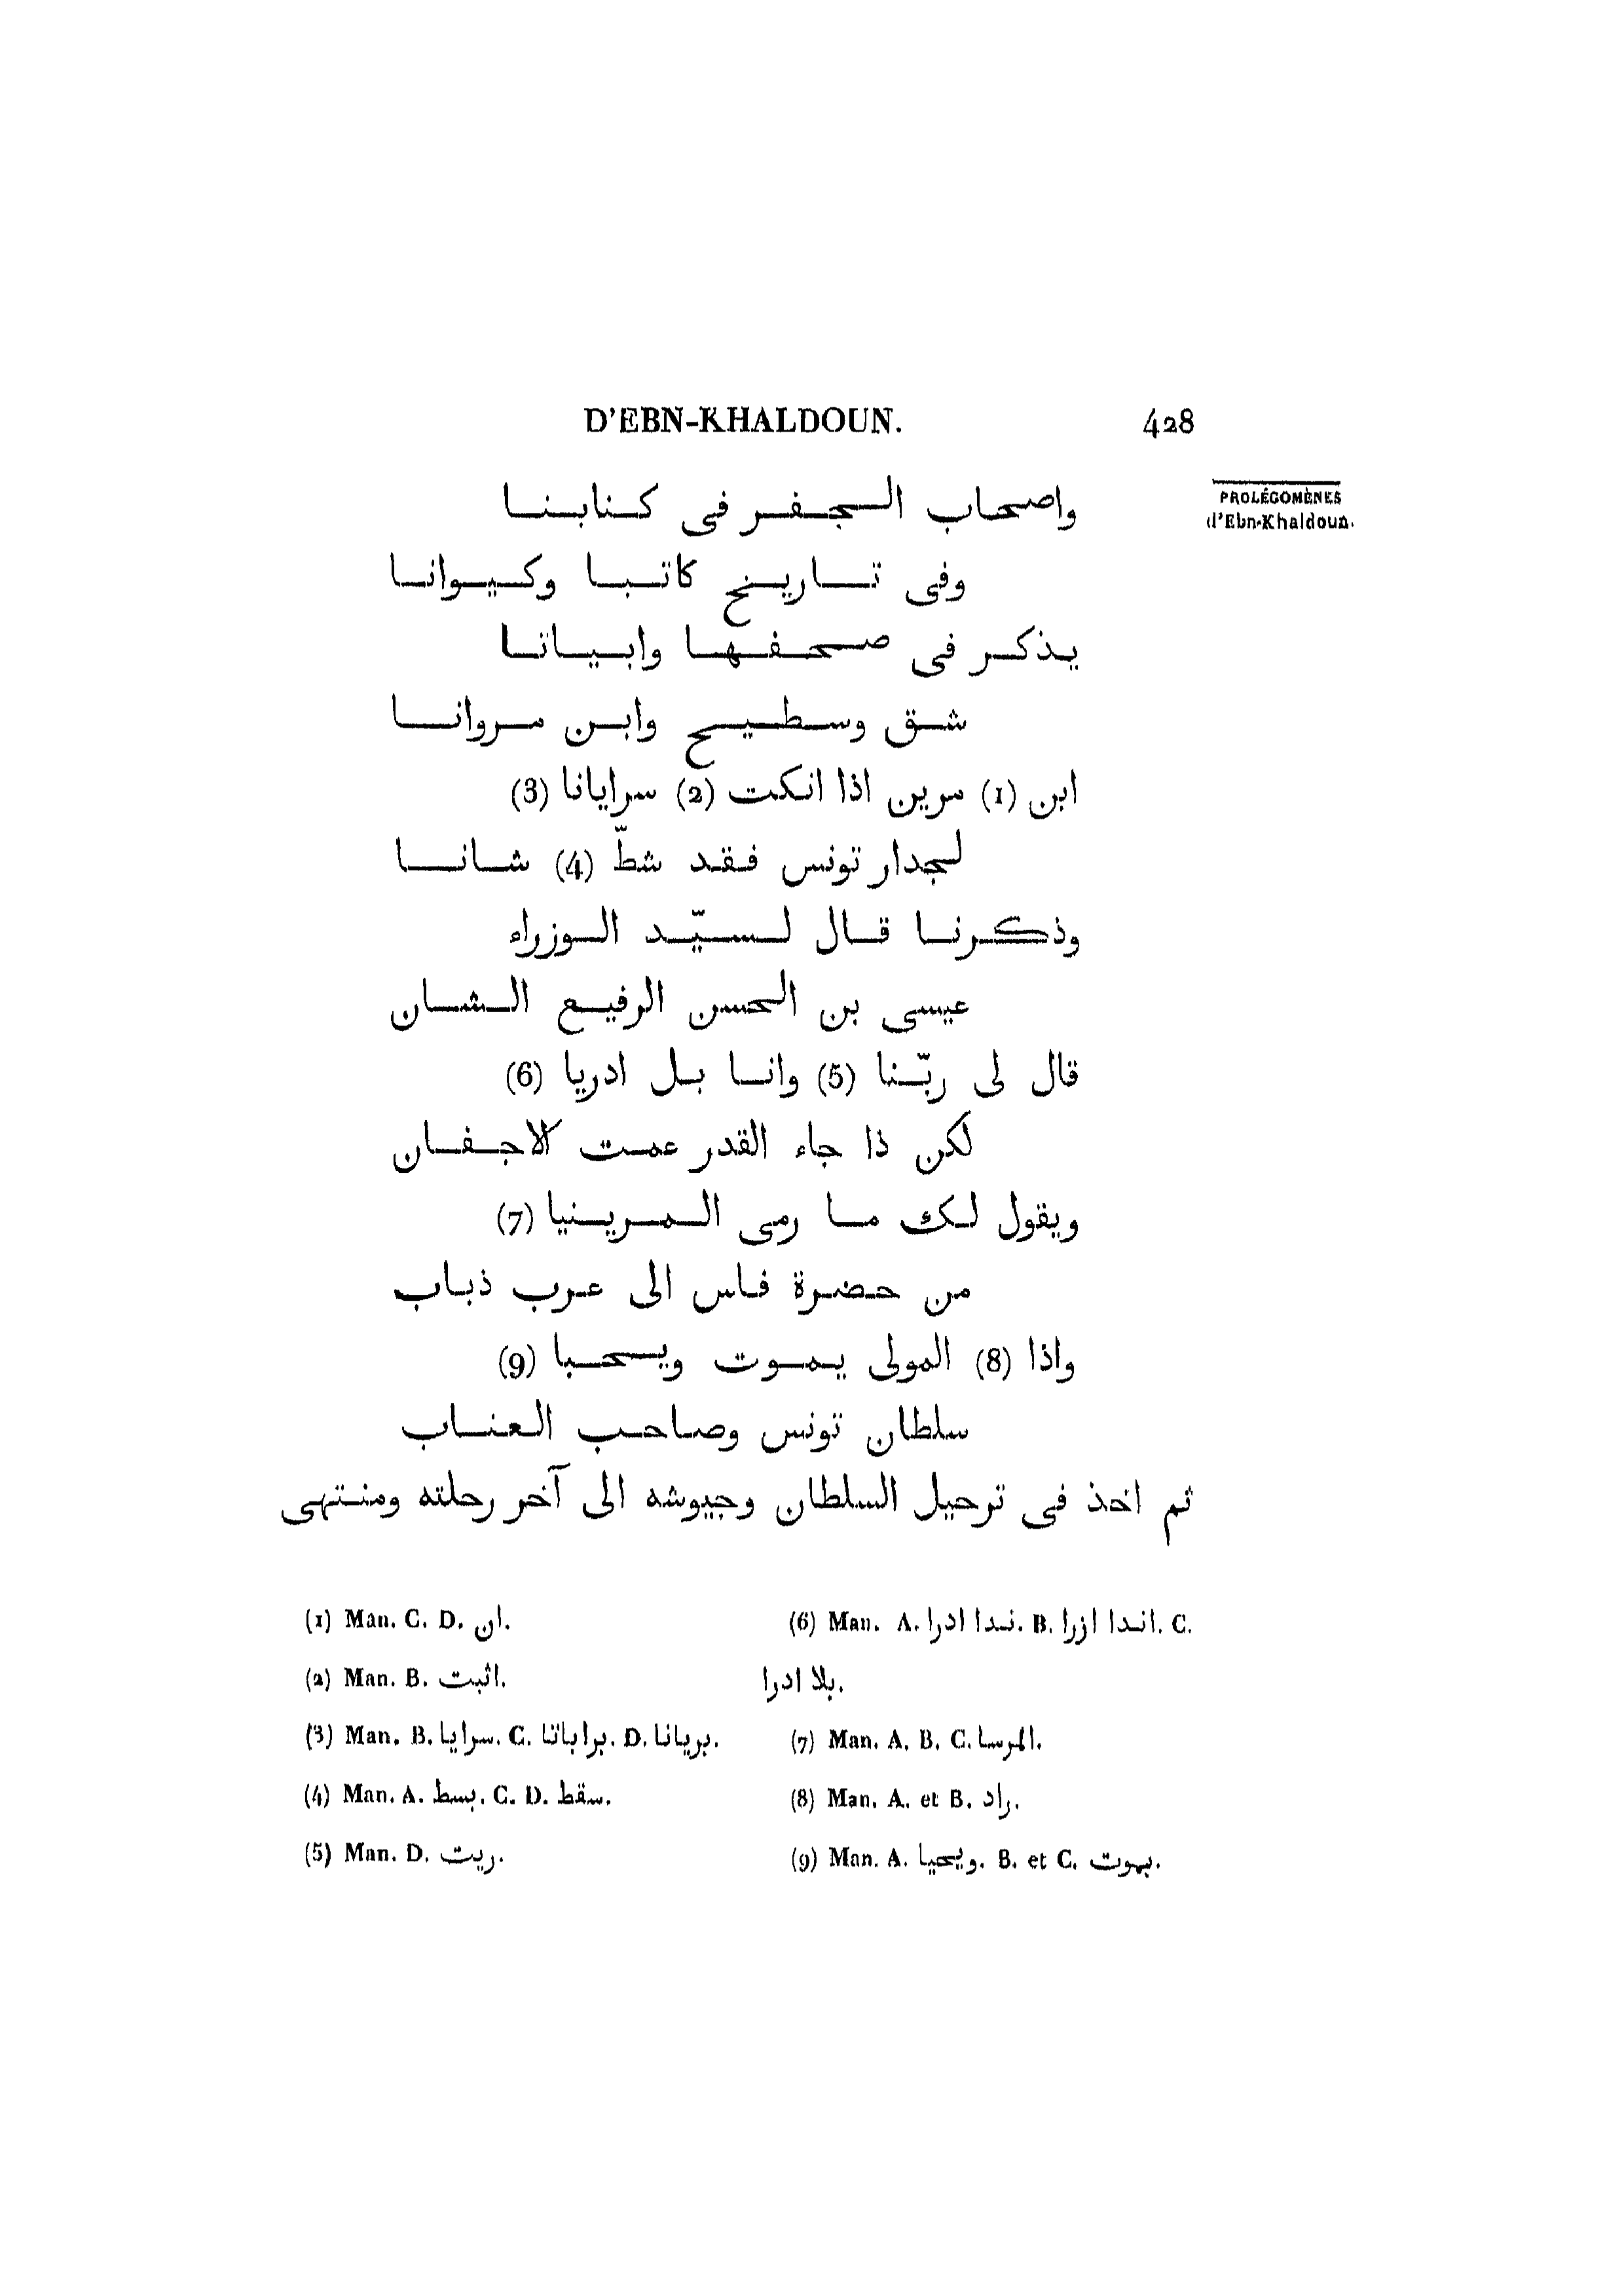 D'EBN-KHALDOUN. 428
PROLÉGOMÈNES
d'Ebn-Khaldoun.
واصحاب الجفر فى كتابنا
وفى تاريخ كاتبا وكيوانا
يذكر فى صحفها وابياتا
شق وسطيح وابن مروانا
ابن (1) مرين اذا انكت (2) سرايانا (3)
لجدار تونس فقد شطّ (4) شانا
وذكرنا قال لسيّد الوزراء
عيسى بن الحسن الرفيع الشان
قال لى ربّنا (5) وانا بل ادريا (6)
لكن ذا جاء القدر عمت الاجفان
ويقول لك ما رمى المرينيا (7)
من حضرة فاس الى عرب ذباب
واذا (8) المولى يموت ويحبا (9)
سلطان تونس وصاحب العناب
ثم اخذ فى ترحيل السلطان وجيوشه الى آخر رحلته ومنتهى
(1) Man. C. D. ان.
(2) Man. B. اثبت.
(3) Man. B. سرايا. C. براباتا. D. بريانا.
(4) Man. A. بسط. C. D. سقط.
(5) Man. D. ريت.
(6) Man. A. ندا ادرا. B. اندا ازرا. C.
بلا ادرا.
(7) Man. A. B. C. المرسا.
(8) Man. A. et B. راد.
(9) Man. A. ويحيا. B. et C. بهوت.